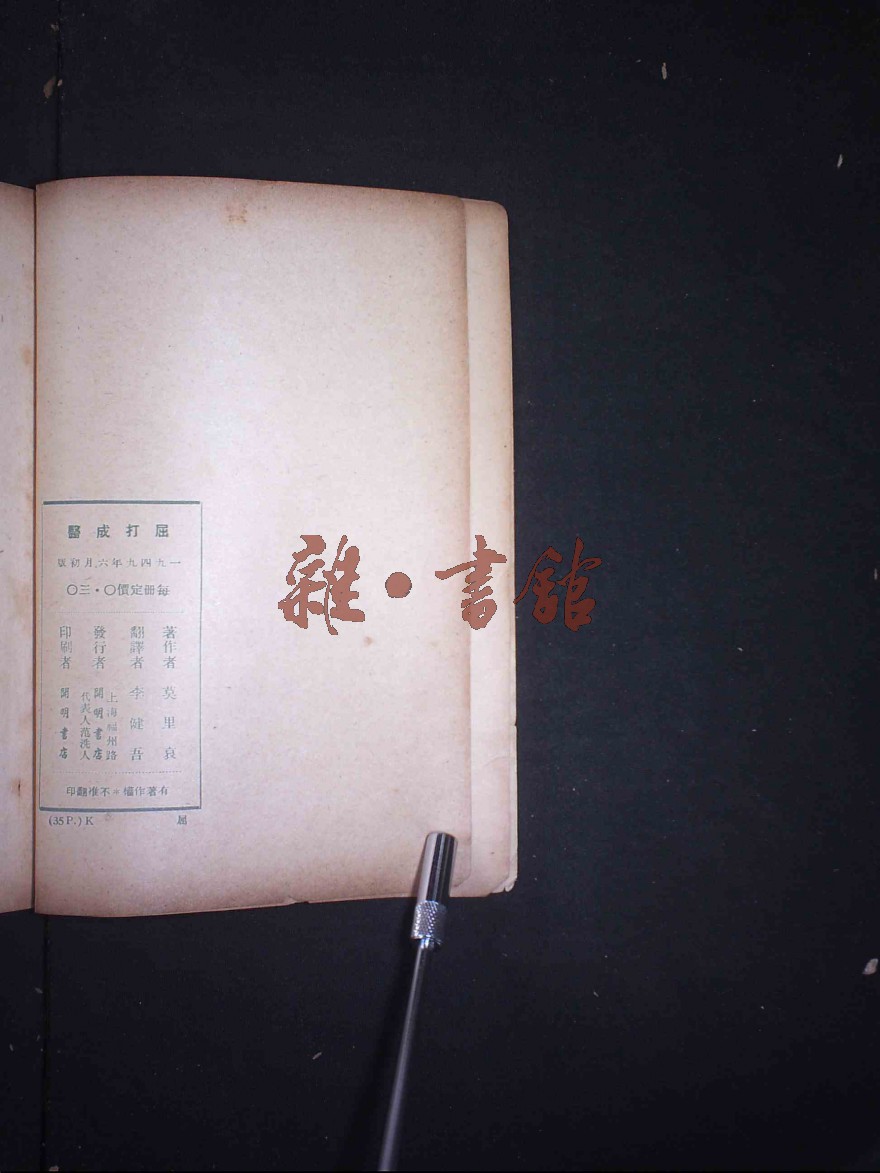 屈打成醫
一九四九年六月初版
每冊定價〇·三〇
著作者 莫里哀
翻譯者 李健吾
發行者 上海福州路 開明書店 代表人范洗人
印刷者 開明書店
有著作權＝不准翻印
(35P.)K 屈
雜·書館